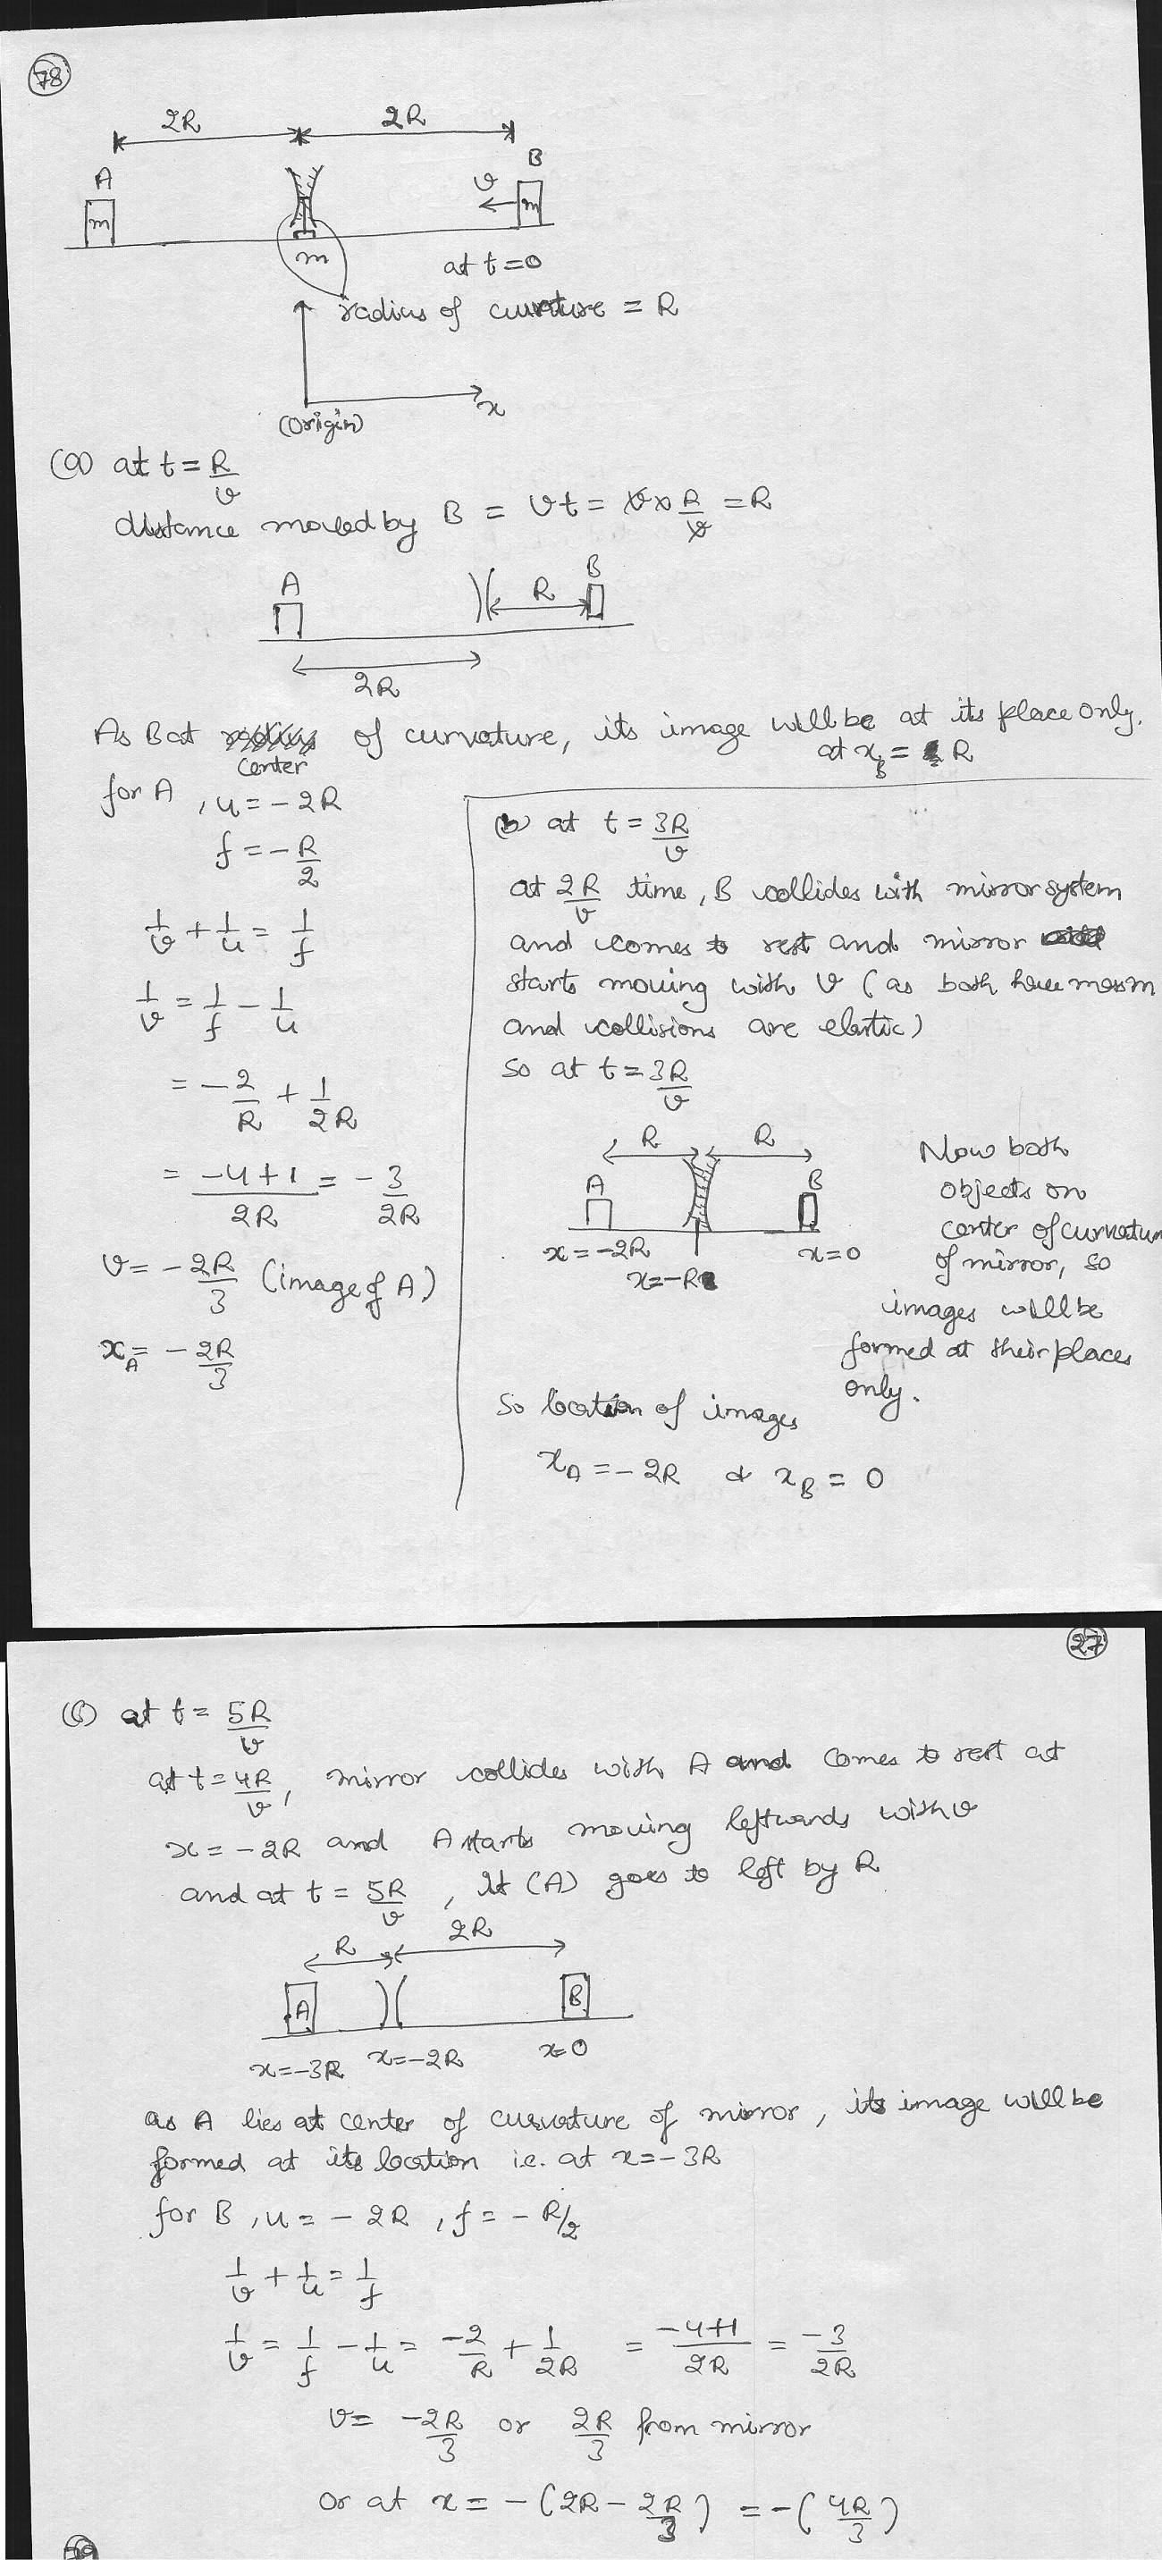 78
2R 2R
A B
m v m
m at t=0
radius of curvature = R
x
(Origin)
(a) at t = R/v
distance moved by B = vt = v x R/v = R
A B
R
2R
As B at of curvature, its image will be at its place only.
Center
at x_B = R
for A, u = -2R
f = -R/2
1/v + 1/u = 1/f
1/v = 1/f - 1/u
= -2/R + 1/2R
= -4+1/2R = -3/2R
v = -2R/3 (image of A)
x_A = -2R/3
(b) at t = 3R/v
at 2R/v time, B collides with mirror system
and comes to rest and mirror
starts moving with v (as both have mass m
and collisions are elastic)
So at t = 3R/v
R R
A B
x = -2R x = 0
x = -R
Now both
objects on
center of curvature
of mirror, so
images will be
formed at their places
only.
So location of images
x_A = -2R & x_B = 0
27
(c) at t = 5R/v
at t = 4R/v, mirror collides with A and comes to rest at
x = -2R and A starts moving leftwards with v
and at t = 5R/v, It (A) goes to left by R
R 2R
A B
x=-3R x=-2R x=0
as A lies at center of curvature of mirror, its image will be
formed at its location i.e. at x=-3R
for B, u = -2R, f = -R/2
1/v + 1/u = 1/f
1/v = 1/f - 1/u = -2/R + 1/2R = -4+1/2R = -3/2R
v = -2R/3 or 2R/3 from mirror
Or at x = -(2R - 2R/3) = -(4R/3)